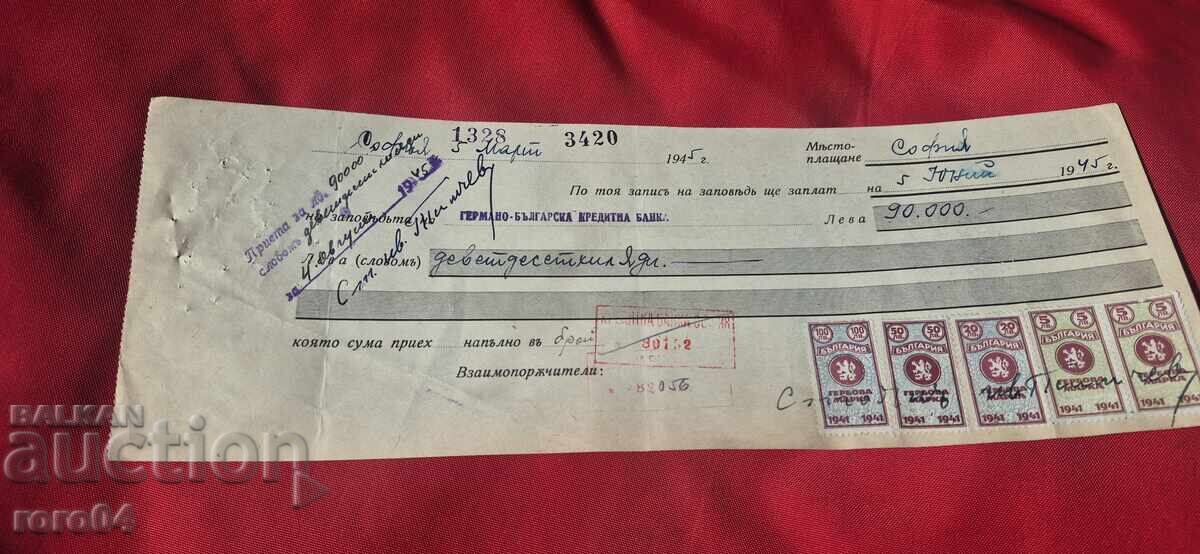 1328 3420
София 5 Мартъ 1945 г. Място-плащане София
По тоя запис на заповѣдь ще заплат на 5 Юний 1945 г.
заповѣдьта ГЕРМАНО-БЪЛГАРСКА КРЕДИТНА БАНКА Лева 90.000.-
Лева (словомъ) деветдесетхиляди.
която сума приех напълно въ брой
Взаимопоржчители:
Приета за лв. 90000
словомъ деветдесет хиляди
за 4 Августъ 1945
80152
82056
100 ЛВ. 100 ЛВ. БЪЛГАРИЯ ГЕРБОВА МАРКА 1941 1941
50 ЛВ. 50 ЛВ. БЪЛГАРИЯ ГЕРБОВА МАРКА 1941 1941
20 ЛВ. 20 ЛВ. БЪЛГАРИЯ ГЕРБОВА МАРКА 1941 1941
5 ЛВ. 5 ЛВ. БЪЛГАРИЯ ГЕРБОВА МАРКА 1941 1941
5 ЛВ. 5 ЛВ. БЪЛГАРИЯ ГЕРБОВА МАРКА 1941 1941
BALKAN
auction
roro04